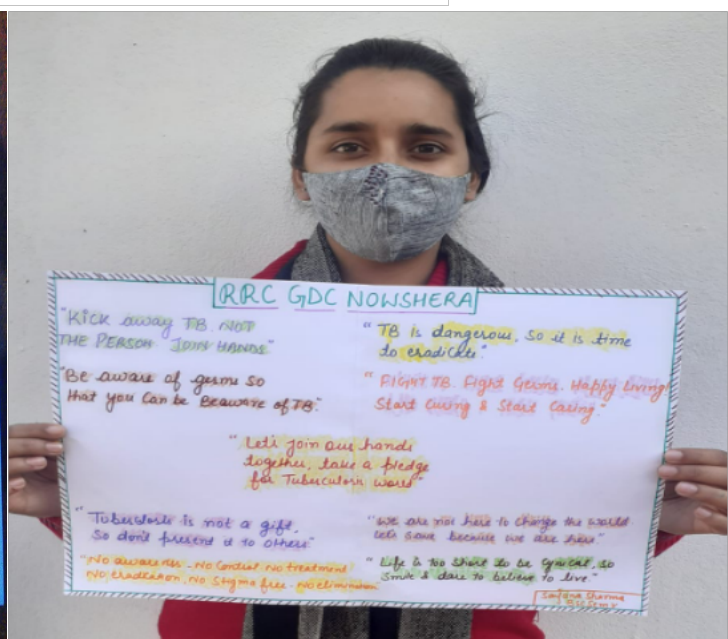 RRC GDC NOWSHERA
"Kick away TB. NOT
THE PERSON JOIN HANDS"
"Be aware of germs so
that you can be Beaware of TB."
" TB is dangerous, so it is time
to eradicate."
" FIGHT TB. Fight Germs. Happy Living!
Start Curing & Start Caring."
" Let's join our hands
together, take a pledge
for Tuberculosis world"
"Tuberculosis is not a gift,
So don't present it to others"
"No awareness - No Control No treatment
No eradication, No Stigma free - No elimination
"We are not here to change the world
let's save because we are here"
" Life is too short to be cynical, so
Smile & dare to believe to live."
Sanjana Sharma